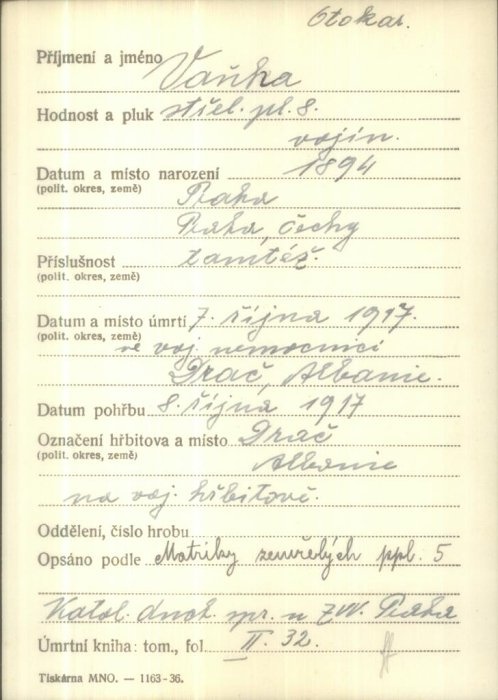 Otokar.
Příjmení a jméno Vaňka
Hodnost a pluk střel. pl. 8.
vojín.
Datum a místo narození 1894
(polit. okres, země) Praha
Praha, Čechy
Příslušnost tamtéž.
(polit. okres, země)
Datum a místo úmrtí 7. října 1917.
(polit. okres, země) ve voj. nemocnici
Drač, Albanie.
Datum pohřbu 8. října 1917
Označení hřbitova a místo Drač
(polit. okres, země) Albanie
na voj. hřbitově.
Oddělení, číslo hrobu
Opsáno podle Matriky zemřelých ppl. 5
Katol. duch. spr. u ZVV. Praha
Úmrtní kniha: tom., fol. II. 32.
Tiskárna MNO. — 1163-36.